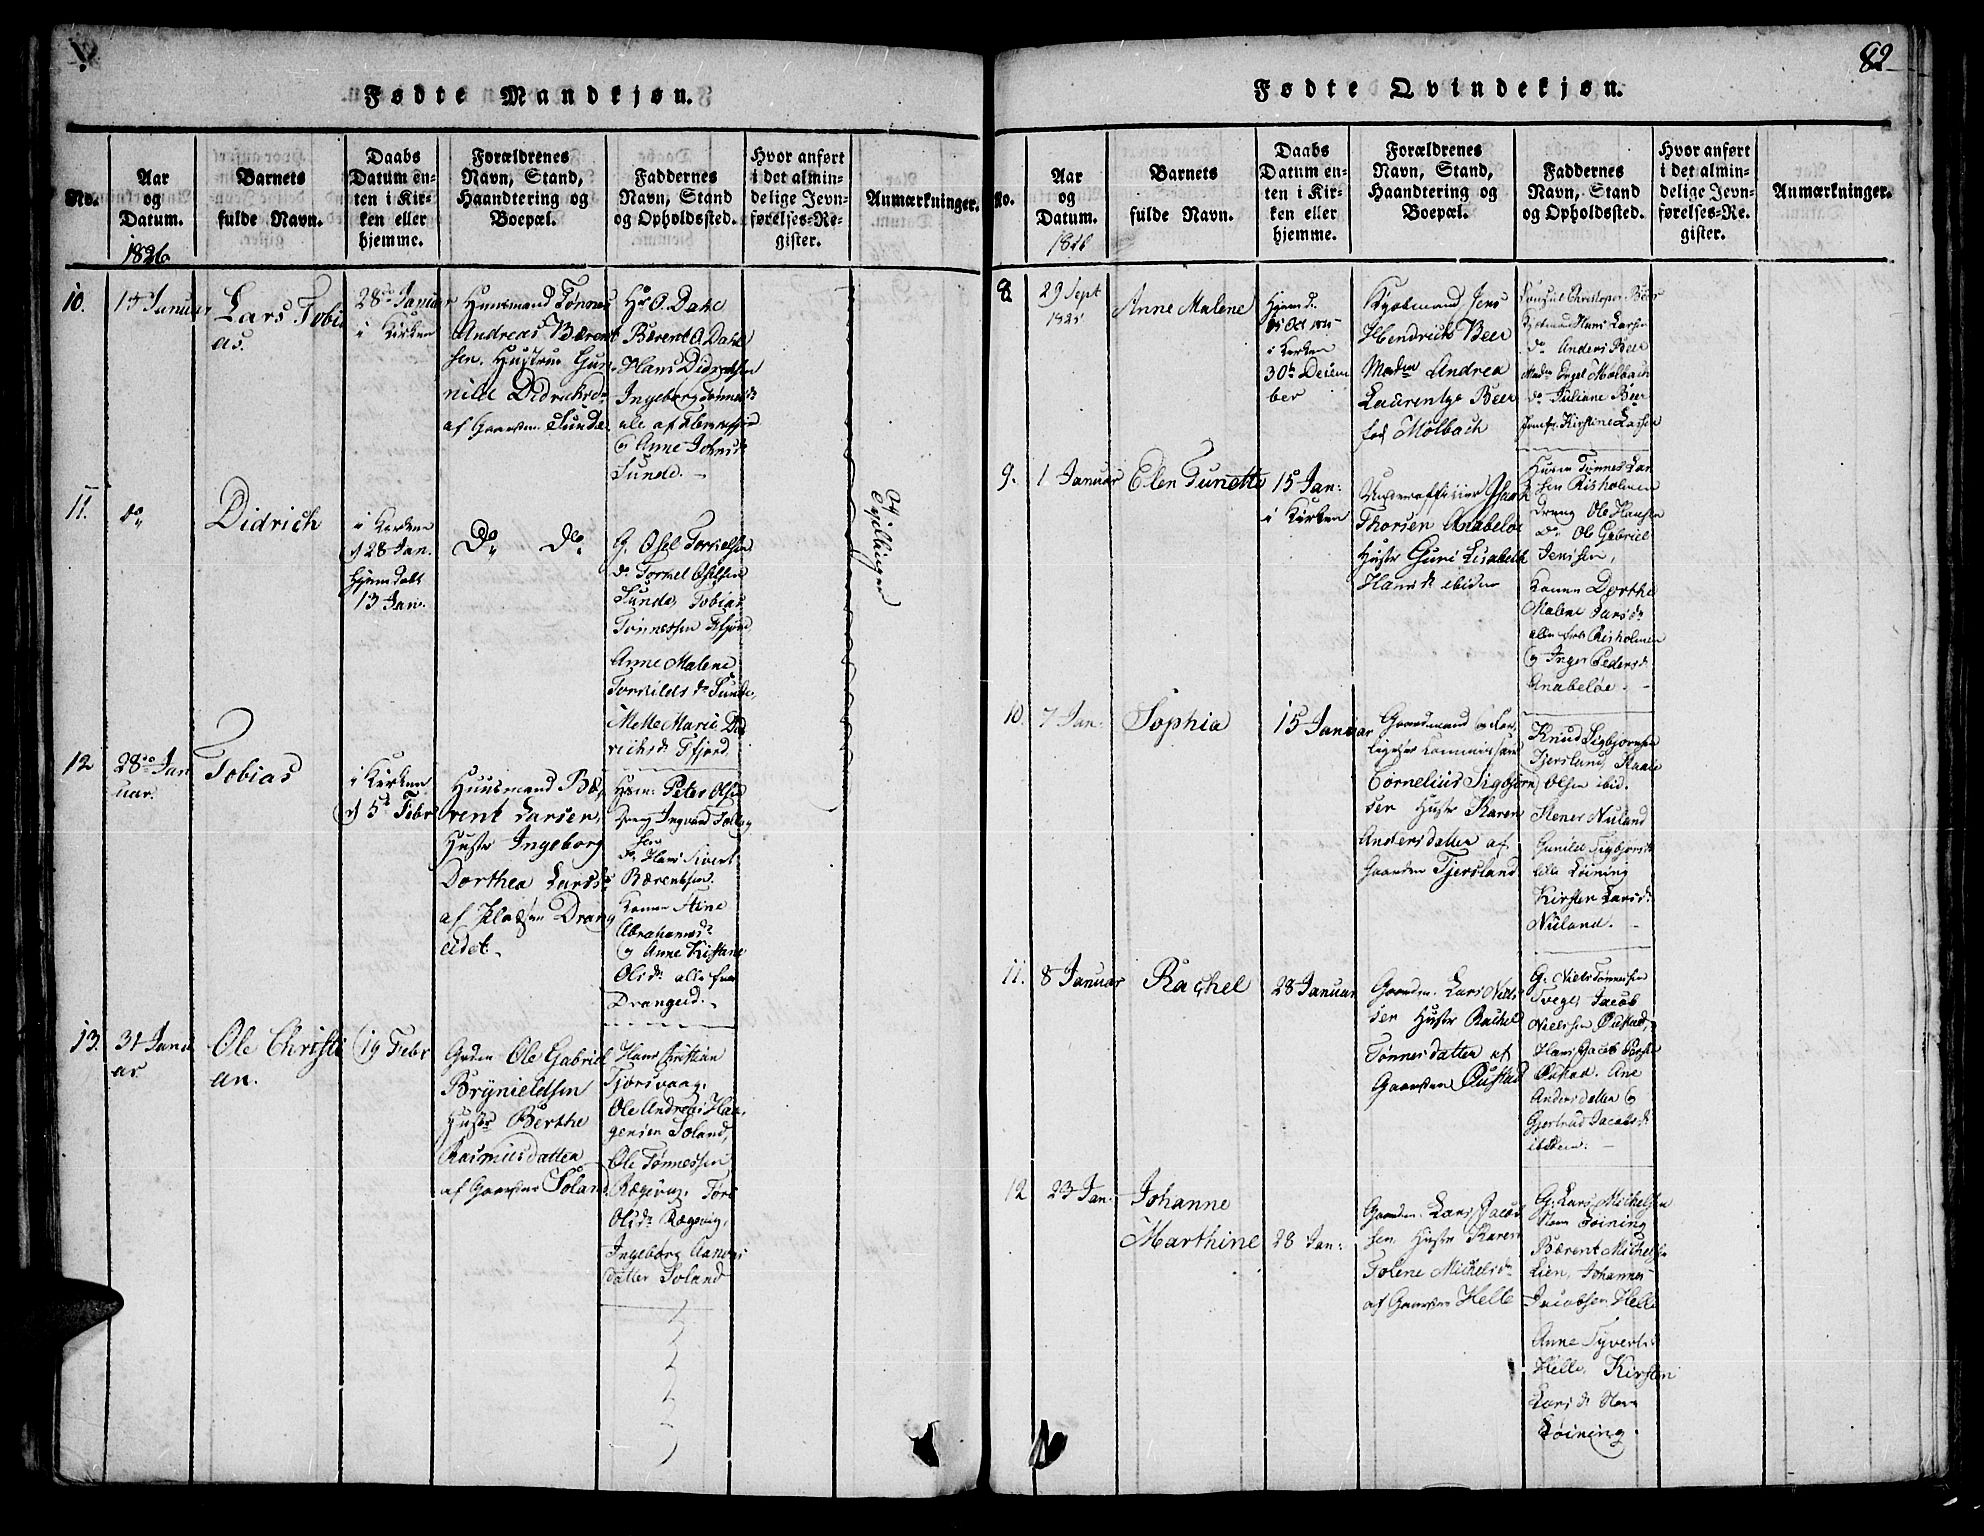 82
Fødte Mandkjøn.
No.
Aar
og
Datum.
1826
Barnets
fulde Navn.
Daabs
Datum en-
ten i Kir-
ken eller
hjemme.
Forældrenes
Navn, Stand,
Haandtering og
Boepæl.
Faddernes
Navn, Stand
og Opholdssted.
Hvor anført
i det almin-
delige Jevn-
førelses-Re-
gister.
Anmærkninger.
10.
14 Januar
Lars Tobi
as.
28de Januar
i Kirken
Huusmand Tønnes
Andreas Bærent
sen, Hustrue Gu
nild Didrichsdr
af Gaarden Sunde.
Hr O. Dahl
Bærent O. Dahl
Hans Didrichsen
Ingeborg Tønnesdr
alle af Flekkefjord
og Anne Johnsdr
Sunde.
11.
do
Didrich
i Kirken
d 28 Jan.
Hjemdøbt
13 Jan.
Do Do
G. Osel Torkelsen
do Torkel Oselsen
Sunde, Tobias
Tønnessen Fjord
Anne Malene
Torkildsdr Sunde,
Mette Marie Did
richsdr Fjord
Tvillinger
12
28de Jan
uar.
Tobias
i Kirken
d 5te Febr
Huusmand Bæ
rent Larsen,
Hustr Ingeborg
Dorthea Larsdr
af Pladsen Drang
eidet.
Huusm: Peter Olsen
Dreng Ingvard Tolleg
sen
do Hans Sivert
Bærentsen.
Konen Stine
Abrahamsdr
og Anne Kistane
Olsdr alle fra
Drangeid.
13.
31 Janu
ar.
Ole Christi
an.
19 Febr
Grden Ole Gabriel
Brynieldsen
Hustr Berthe
Rasmusdatter
af Gaarden Soland.
Hans Christian
Tjørsvaag,
Ole Andreas Haa
gensen Soland,
Ole Tønnessen
Rægevig, Tøri
Olsdr Rægevig,
Ingeborg Aanens
datter Soland
Fødte Qvindekjøn.
No.
Aar
og
Datum.
1826
Barnets
fulde Navn.
Daabs
Datum en-
ten i Kir-
ken eller
hjemme.
Forældrenes
Navn, Stand,
Haandtering og
Boepæl.
Faddernes
Navn, Stand
og Opholdssted.
Hvor anført
i det almin-
delige Jevn-
førelses-Re-
gister.
Anmærkninger.
8.
29 Sept
1825
Anne Malene
Hjemd.
i Kirken
30te Decem
ber
Kjøbmand Jens
Hendrich Beer
Madm Andrea
Laurentze Beer
fød Mølbach
Konsul Christopher Beer
Kjøbman Hans Larsen
do Anders Beer
Madm Engel Mølbach
do Juliane Beer
Jomfr. Kirstine Lassen
9.
1 Januar
Elen Tunette
15 Jan:
i Kirken
Underofficier Isaach
Thorsen Anabeløe
Hustr Guri Lisabeth
Hansdr ibidem
Huusm Tønnes Lar
sen Risholmen
Dreng Ole Hansen
do Ole Gabriel
Jenssen,
Konen Dorthe
Malene Larsdr
alle fra Risholmen
og Inger Pedersdr
Anabeløe.
10.
7 Jan:
Sophia
15 Januar
Gaardmand
Cornelius Sigbjørn
sen Hustr Karen
Andersdatter af
Gaarden Tjersland
Knud Sigbjørnsen
Tjersland,
Olsen ibid.
Stener Nuland
Gunild Sigbjørnsdr
lille Løining
Kirsten Larsdr
Nuland.
11.
8 Januar
Rachel
28 Januar
Gaardm. Lars Niels
sen Hustr Rachel
Tønnesdatter af
Gaarden Øustad
G. Niels Tønnessen
Tveget, Jacob
Nielssen Øustad,
Hans Jacob
Øustad. Ane
Andersdatter og
Gjertrud Jacobsdr
ibidem.
12
23 Jan.
Johanne
Marthine
28 Jan:
Gaardm. Lars Jacob
sen Hustr Karen
Tolene Michelsdr
af Gaarden Helle
G. Lars Michelsen
Store Løining
Bærent Michelsen
Lien, Johannes
Jacobsen Helle
Anne Syvertsdr
Helle, Kirsten
Larsdr Store
Løining.